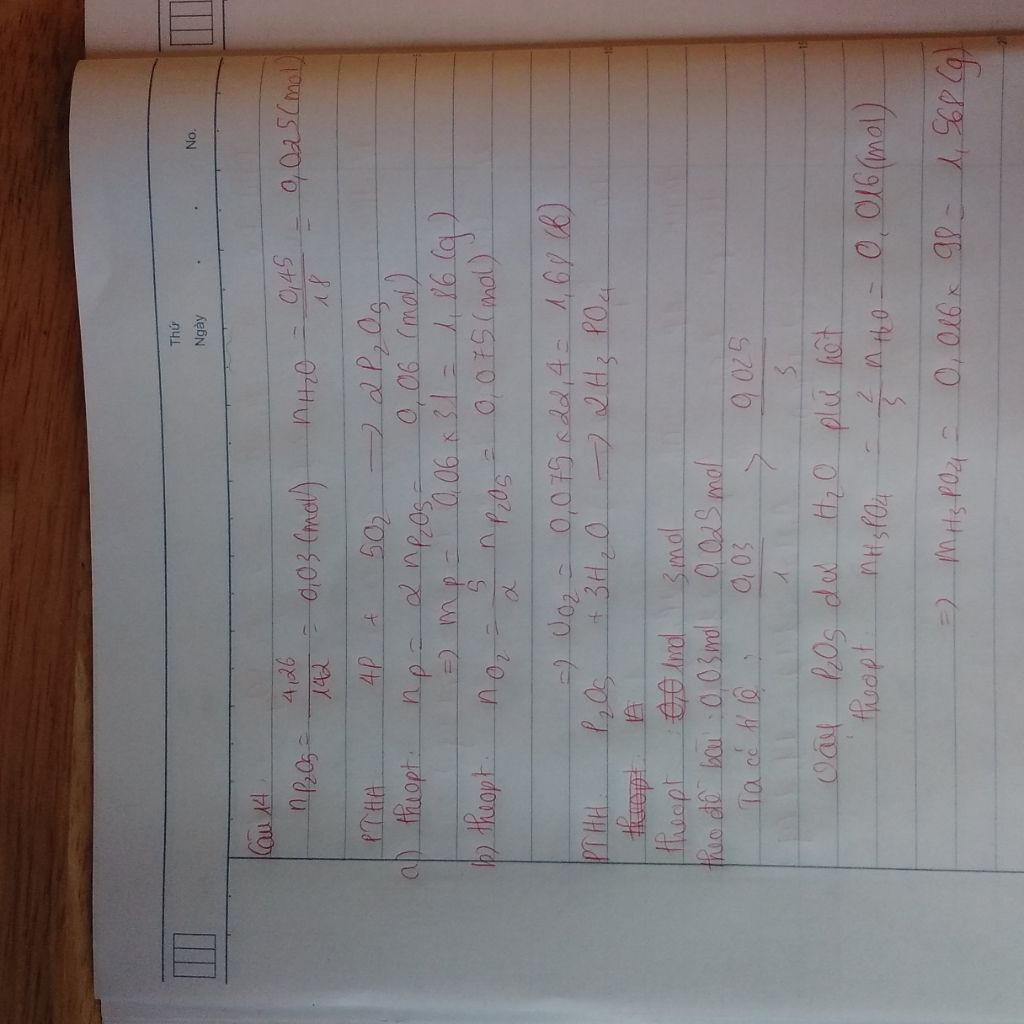 Thứ
Ngày . . No.
Câu 14.
nP2O5 = 4,26/142 = 0,03 (mol) nH2O = 0,45/18 = 0,025 (mol)
PTHH 4P + 5O2 → 2P2O5
a) theopt: nP = 2nP2O5 = 0,06 (mol)
=) mP = 0,06 x 31 = 1,86 (g)
b) theopt. nO2 = 5/2 nP2O5 = 0,075 (mol)
=) VO2 = 0,075 x 22,4 = 1,68 (l)
PTHH. P2O5 + 3H2O → 2H3PO4
theopt
theopt : 1mol 3mol
theo đề bài : 0,03mol 0,025mol
Ta có tỉ lệ : 0,03/1 > 0,025/3
Vậy P2O5 dư H2O phư hết
theopt. nH3PO4 = 2/3 nH2O = 0,016 (mol)
=) mH3PO4 = 0,016 x 98 = 1,568 (g)